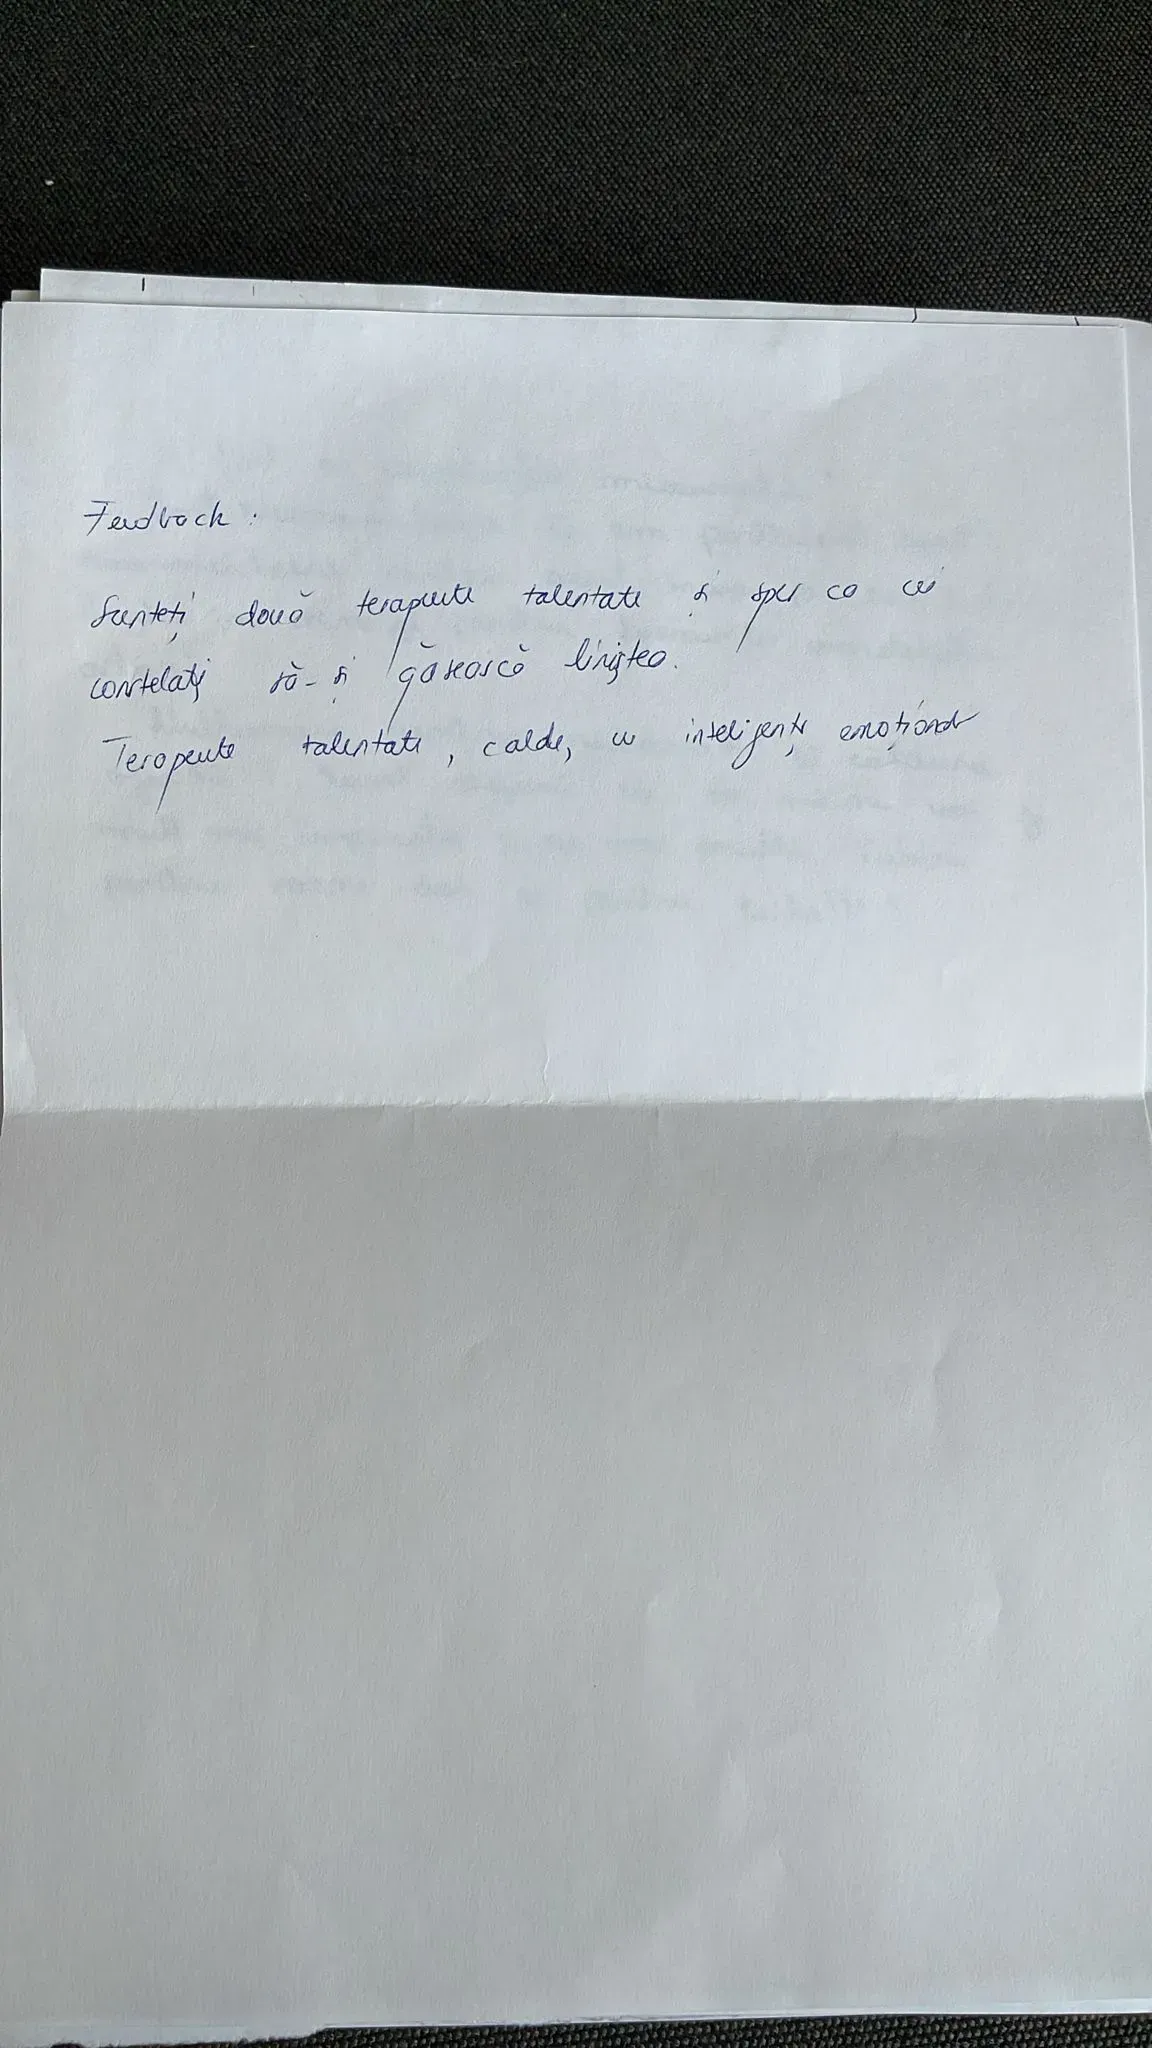 Feedback:
Sunteți două terapeute talentate și sper ca cei
constelați să-și găsească liniștea.
Terapeute talentate, calde, cu inteligență emoțională